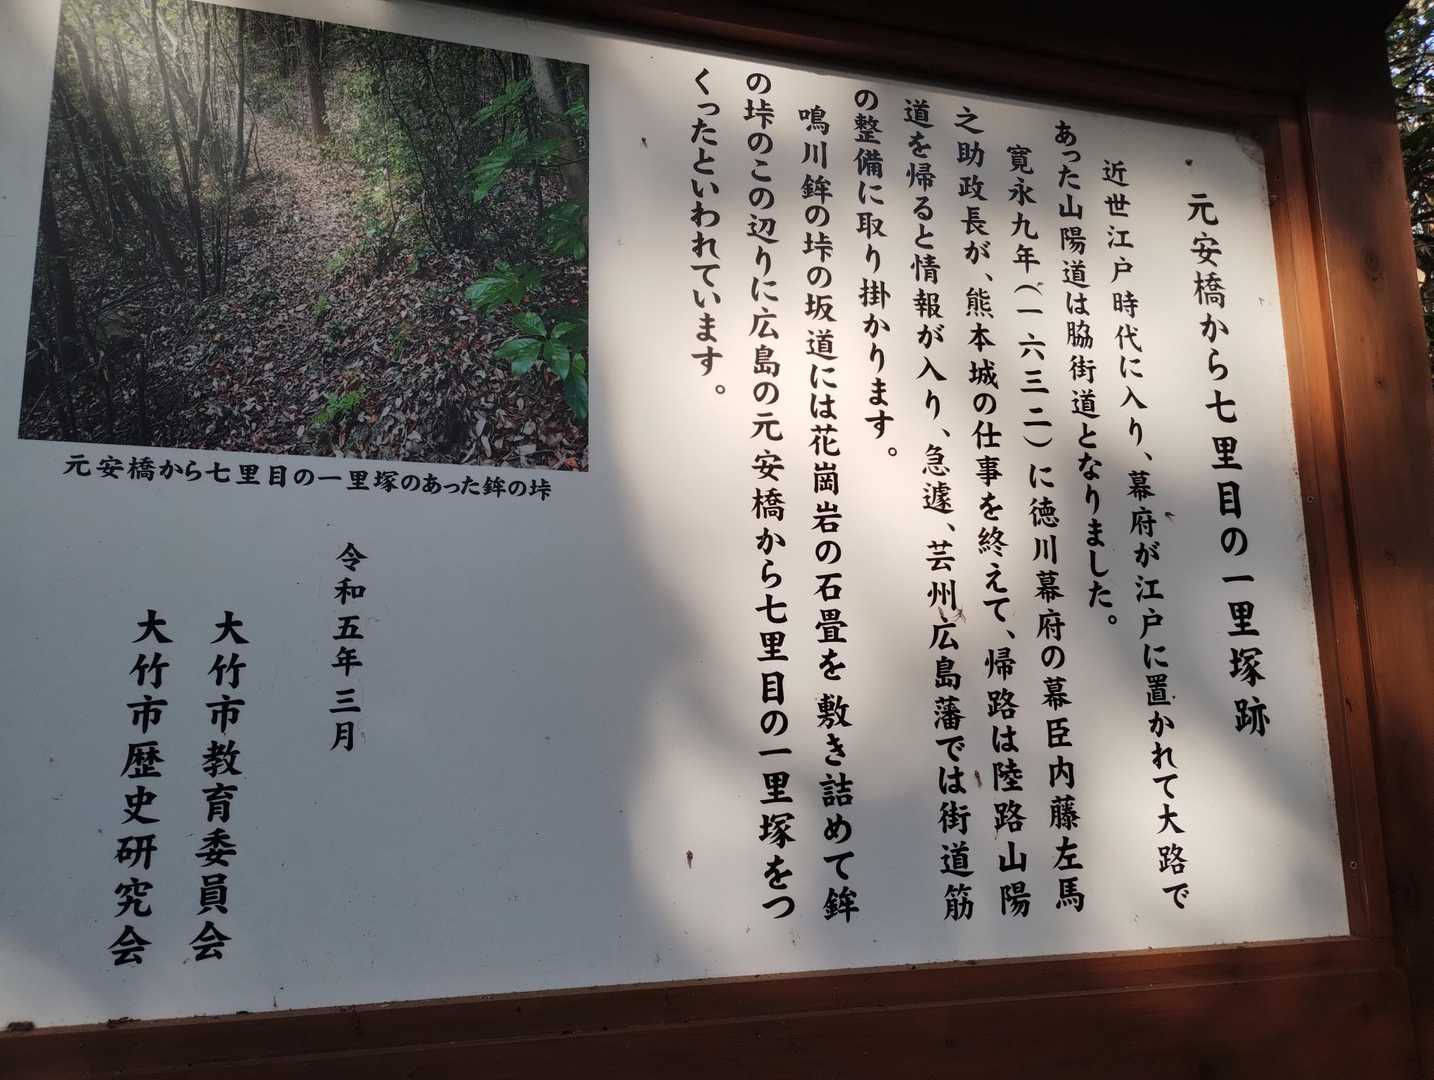 元安橋から七里目の一里塚跡
近世江戸時代に入り、幕府が江戸に置かれて大路で
あった山陽道は脇街道となりました。
寛永九年(一六三二)に徳川幕府の幕臣内藤左馬
之助政長が、熊本城の仕事を終えて、帰路は陸路山陽
道を帰ると情報が入り、急遽、芸州広島藩では街道筋
の整備に取り掛かります。
鳴川鉾の垰の坂道には花崗岩の石畳を敷き詰めて鉾
の垰のこの辺りに広島の元安橋から七里目の一里塚をつ
くったといわれています。
元安橋から七里目の一里塚のあった鉾の垰
令和五年三月
大竹市教育委員会
大竹市歴史研究会